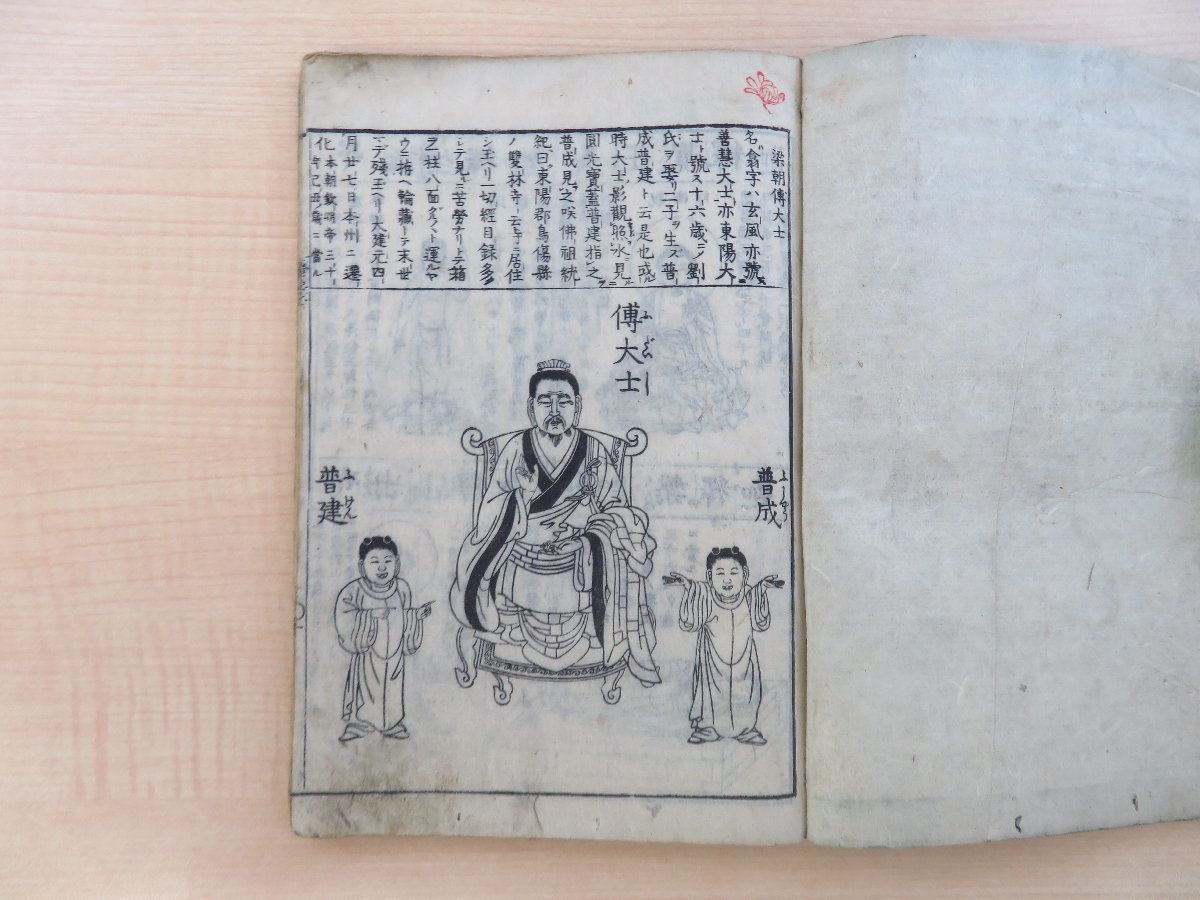 梁朝傅大士
名ハ翕字ハ玄風亦號ス
善慧大士ト亦東陽大
士ト號ス十六歳ニノ劉
氏ヲ娶リ二子ヲ生ス普
成普建ト云是也或
時大士影觀照水ニ見
圓光寶蓋普建指之
普成見之咲佛祖統
紀曰東陽郡烏傷縣
ノ雙林寺ト云寺ニ居住
シ玉ヘリ一切經目録多
シテ見ニ苦勞ナリトテ箱
ヲ柱八面
ウニ拵ヘ輪藏トテ末世
ニデ残玉ヘリ大建元四
月廿七日本州ニ還
化本朝欽明帝三十
年己丑ノ歳ニ當ル
傅大士
ふだいし
普成
ふじやう
普建
ふけん